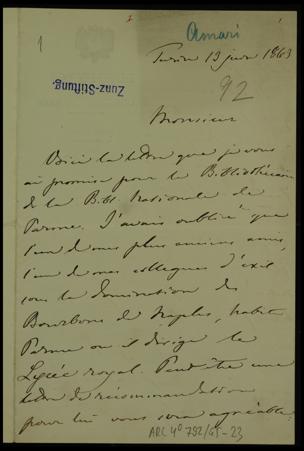 1
Amari
Turin 13 juin 1863
92
Zunz-Stiftung.
Monsieur
Voici la lettre que je vous
ai promise pour le Bibliothécaire
de la Bibl. Nationale de
Parme. J'avais oublié que
l'un de mes plus anciens amis,
l'un de mes collègues d'exil
sous la domination des
Bourbons de Naples, habite
Parme où il dirige le
Lycée royal. Peut être une
lettre de récommandation
pour lui vous sera agréable.
ARC 4° 792/G5-23